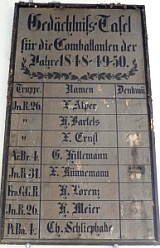 Gedächtniß-Tafel
für die Combattanten der
Jahre 1848-49-50.
Truppe. Namen Denkmü.
In.R.26. L. Alper
" H. Bartels
" L. Ernst
A.Br.4. G. Hillemann
In.R.31. L. Hünnemann
Fr.Gd.R. H. Lorenz
In.R.26. H. Meier
Pi.Ba.4. Ch. Schliephake